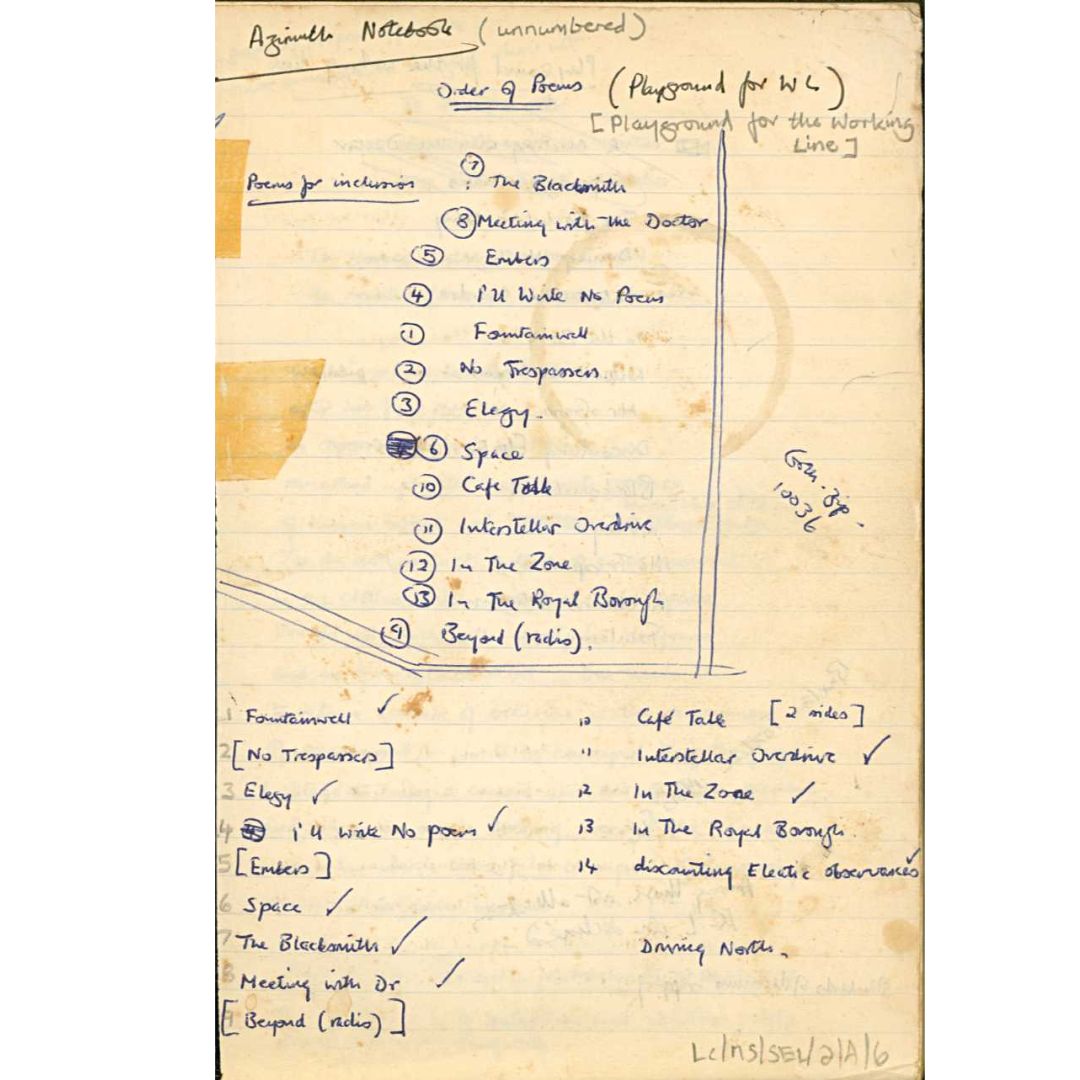 Azimuth Notebook (unnumbered)
Order of Poems (Playground for WL)
[Playground for the Working
Line]
Poems for inclusion
7 The Blacksmith
8 Meeting with the Doctor
5 Embers
4 I'll Write No Poems
1 Fountainwell
2 No Trespassers
3 Elegy.
6 Space
10 Cafe Talk
11 Interstellar Overdrive
12 In The Zone
13 In The Royal Borough
9 Beyond (radio).
Zip.
10036
1 Fountainwell ✓
2 [No Trespassers]
3 Elegy ✓
4 I'll write No poems ✓
5 [Embers]
6 Space ✓
7 The Blacksmith ✓
8 Meeting with Dr ✓
9 [Beyond (radio)]
10 Café Talk [2 sides]
11 Interstellar Overdrive ✓
12 In The Zone ✓
13 In The Royal Borough.
14 discounting Eleatic observances ✓
Driving North.
LC/MS/SEL/2/A/6